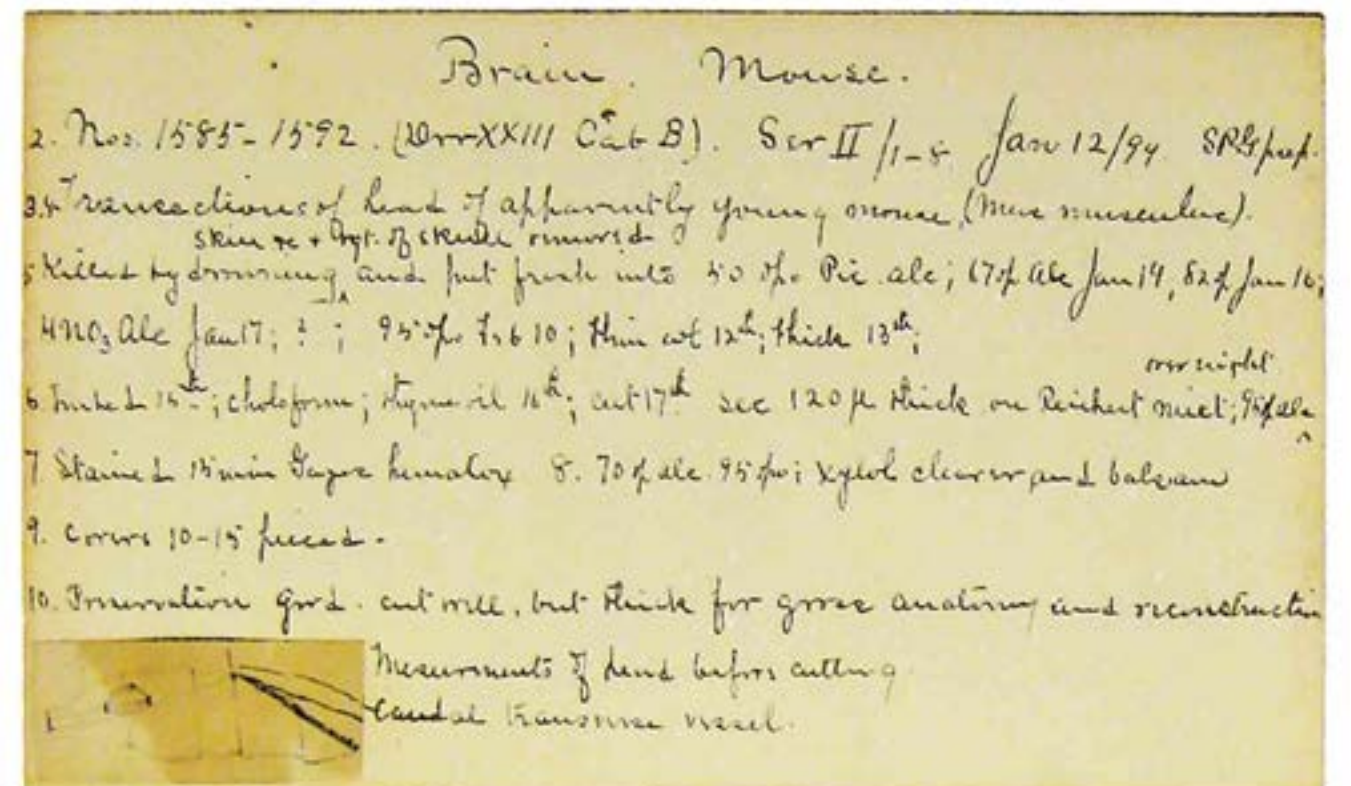 Brain. Mouse.
2. Nos. 1585-1592. (Drr XXIII Cab B). Ser II/1-8 Jan 12/94. SPG prep.
3.4 Transections of head of apparently young mouse, (Mus musculus).
skin &c + of skull removed
5 Killed by drowning and put fresh into 50 % Pic alc; 67% Alc Jan 14, 82% Jan 16;
HNO3 Alc Jan 17; ? ; 95% 10; thin col 12th; thick 13th;
over night
6. 15th; choloform; thyme oil 16th; cut 17th sec 120 µ thick on Reichert mict; 95% alc
7 Stained 15 min Gages hematox 8. 70% alc. 95%; xylol clearer and balsam
9. Covers 10-15
10. Preservation good. cut well, but thick for gross anatomy and reconstruction
Mesurments of head before cutting
Caudal transverse vessel.